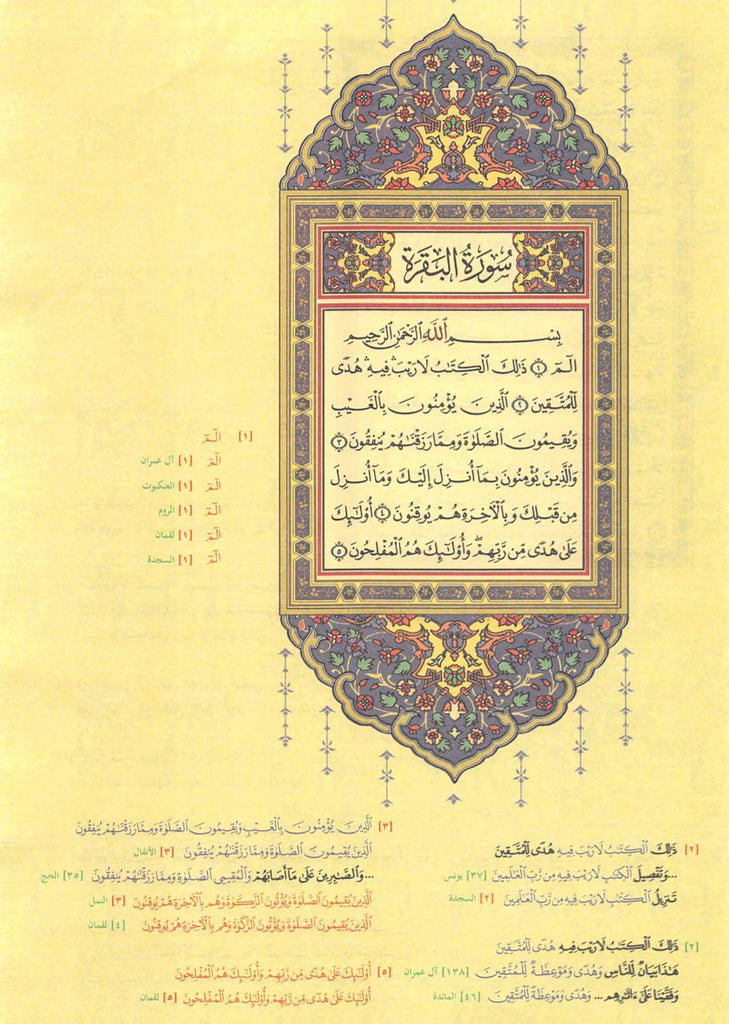 سُورَةُ البَقَرَة
بِسْمِ ٱللَّهِ ٱلرَّحْمَٰنِ ٱلرَّحِيمِ
الٓمٓ ١ ذَٰلِكَ ٱلْكِتَٰبُ لَا رَيْبَ ۛ فِيهِ ۛ هُدًى
لِّلْمُتَّقِينَ ٢ ٱلَّذِينَ يُؤْمِنُونَ بِٱلْغَيْبِ
وَيُقِيمُونَ ٱلصَّلَوٰةَ وَمِمَّا رَزَقْنَٰهُمْ يُنفِقُونَ ٣
وَٱلَّذِينَ يُؤْمِنُونَ بِمَآ أُنزِلَ إِلَيْكَ وَمَآ أُنزِلَ
مِن قَبْلِكَ وَبِٱلْءَاخِرَةِ هُمْ يُوقِنُونَ ٤ أُو۟لَٰٓئِكَ
عَلَىٰ هُدًى مِّن رَّبِّهِمْ ۖ وَأُو۟لَٰٓئِكَ هُمُ ٱلْمُفْلِحُونَ ٥
[١] الٓمٓ
الٓمٓ [١] آل عمران
الٓمٓ [١] العنكبوت
الٓمٓ [١] الروم
الٓمٓ [١] لقمان
الٓمٓ [١] السجدة
[٢] ذَٰلِكَ ٱلْكِتَٰبُ لَا رَيْبَ فِيهِ هُدًى لِّلْمُتَّقِينَ
...وَتَفْصِيلَ ٱلْكِتَٰبِ لَا رَيْبَ فِيهِ مِن رَّبِّ ٱلْعَٰلَمِينَ [٣٧] يونس
تَنزِيلُ ٱلْكِتَٰبِ لَا رَيْبَ فِيهِ مِن رَّبِّ ٱلْعَٰلَمِينَ [٢] السجدة
[٢] ذَٰلِكَ ٱلْكِتَٰبُ لَا رَيْبَ فِيهِ هُدًى لِّلْمُتَّقِينَ
هَٰذَا بَيَانٌ لِّلنَّاسِ وَهُدًى وَمَوْعِظَةٌ لِّلْمُتَّقِينَ [١٣٨] آل عمران
وَقَفَّيْنَا عَلَىٰٓ ءَاثَٰرِهِم... وَهُدًى وَمَوْعِظَةً لِّلْمُتَّقِينَ [٤٦] المائدة
[٣] ٱلَّذِينَ يُؤْمِنُونَ بِٱلْغَيْبِ وَيُقِيمُونَ ٱلصَّلَوٰةَ وَمِمَّا رَزَقْنَٰهُمْ يُنفِقُونَ
ٱلَّذِينَ يُقِيمُونَ ٱلصَّلَوٰةَ وَمِمَّا رَزَقْنَٰهُمْ يُنفِقُونَ [٣] الأنفال
...وَٱلصَّٰبِرِينَ عَلَىٰ مَآ أَصَابَهُمْ وَٱلْمُقِيمِى ٱلصَّلَوٰةِ وَمِمَّا رَزَقْنَٰهُمْ يُنفِقُونَ [٣٥] الحج
ٱلَّذِينَ يُقِيمُونَ ٱلصَّلَوٰةَ وَيُؤْتُونَ ٱلزَّكَوٰةَ وَهُم بِٱلْءَاخِرَةِ هُمْ يُوقِنُونَ [٣] النمل
ٱلَّذِينَ يُقِيمُونَ ٱلصَّلَوٰةَ وَيُؤْتُونَ ٱلزَّكَوٰةَ وَهُم بِٱلْءَاخِرَةِ هُمْ يُوقِنُونَ [٤] لقمان
[٥] أُو۟لَٰٓئِكَ عَلَىٰ هُدًى مِّن رَّبِّهِمْ وَأُو۟لَٰٓئِكَ هُمُ ٱلْمُفْلِحُونَ
أُو۟لَٰٓئِكَ عَلَىٰ هُدًى مِّن رَّبِّهِمْ وَأُو۟لَٰٓئِكَ هُمُ ٱلْمُفْلِحُونَ [٥] لقمان